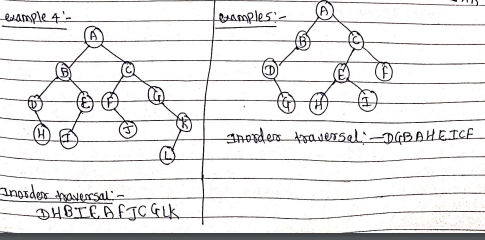 example 4:-
A
B C
D E F G
H I J K
L
Inorder traversal:-
DHBIEAFJCGLK
example 5:-
A
B C
D E F
G H I
Inorder traversal:- DGBAHEICF